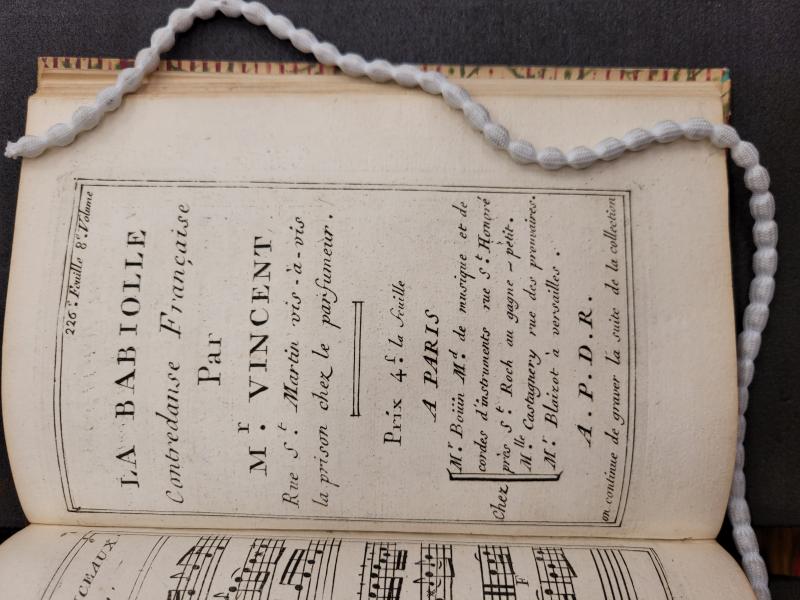 226.e Feuille 8.e Volume
LA BABIOLLE
Contredanse Française
Par
Mr. VINCENT
Rue St. Martin vis-à-vis
la prison chez le parfumeur.
Prix 4.f la feuille
A PARIS
Chez
Mr Boüin Md. de musique et de
cordes d'instruments rue St. Honoré
près St. Roch au gagne-petit.
Mlle Castagnery rue des prouvaires.
Mr. Blaizot à versailles.
A. P. D. R.
on continue de graver la suite de la collection
CEAUX.
F